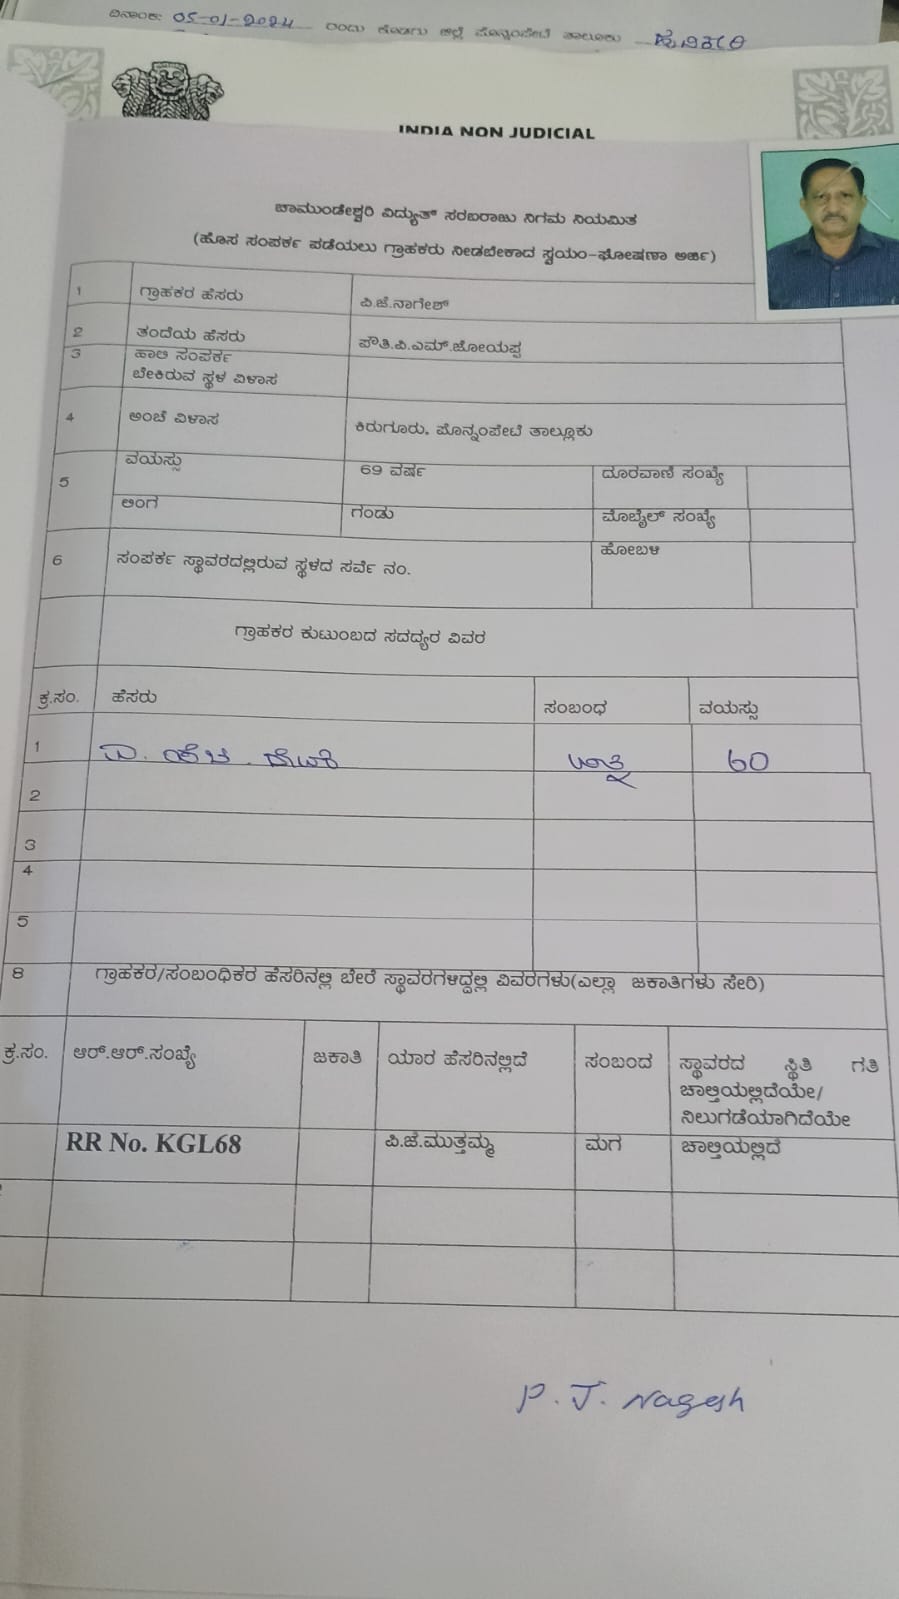 ದಿನಾಂಕ: 05-01-2024 ರಂದು ಕೊಡಗು ಜಿಲ್ಲೆ ಪೊನ್ನಂಪೇಟೆ ತಾಲೂಕು
INDIA NON JUDICIAL
ಚಾಮುಂಡೇಶ್ವರಿ ವಿದ್ಯುತ್ ಸರಬರಾಜು ನಿಗಮ ನಿಯಮಿತ
(ಹೊಸ ಸಂಪರ್ಕ ಪಡೆಯಲು ಗ್ರಾಹಕರು ನೀಡಬೇಕಾದ ಸ್ವಯಂ-ಘೋಷಣಾ ಅರ್ಜಿ)
1 ಗ್ರಾಹಕರ ಹೆಸರು ಪಿ.ಜೆ.ನಾಗೇಶ್
2 ತಂದೆಯ ಹೆಸರು ಪೌತಿ.ಪಿ.ಎಮ್.ಜೋಯಪ್ಪ
3 ಹಾಲಿ ಸಂಪರ್ಕ
ಬೇಕಿರುವ ಸ್ಥಳ ವಿಳಾಸ
4 ಅಂಚೆ ವಿಳಾಸ ಕಿರುಗೂರು, ಪೊನ್ನಂಪೇಟೆ ತಾಲ್ಲೂಕು
5 ವಯಸ್ಸು 69 ವರ್ಷ ದೂರವಾಣಿ ಸಂಖ್ಯೆ
ಲಿಂಗ ಗಂಡು ಮೊಬೈಲ್ ಸಂಖ್ಯೆ
6 ಸಂಪರ್ಕ ಸ್ಥಾವರದಲ್ಲಿರುವ ಸ್ಥಳದ ಸರ್ವೆ ನಂ. ಹೋಬಳಿ
ಗ್ರಾಹಕರ ಕುಟುಂಬದ ಸದದ್ಯರ ವಿವರ
ಕ್ರ.ಸಂ. ಹೆಸರು ಸಂಬಂಧ ವಯಸ್ಸು
1 60
2
3
4
5
8 ಗ್ರಾಹಕರ/ಸಂಬಂಧಿಕರ ಹೆಸರಿನಲ್ಲಿ ಬೇರೆ ಸ್ಥಾವರಗಳಿದ್ದಲ್ಲಿ ವಿವರಗಳು(ಎಲ್ಲಾ ಜಕಾತಿಗಳು ಸೇರಿ)
ಕ್ರ.ಸಂ. ಆರ್.ಆರ್.ಸಂಖ್ಯೆ ಜಕಾತಿ ಯಾರ ಹೆಸರಿನಲ್ಲಿದೆ ಸಂಬಂದ ಸ್ಥಾವರದ ಸ್ಥಿತಿ ಗತಿ
ಚಾಲ್ತಿಯಲ್ಲಿದೆಯೇ/
ನಿಲುಗಡೆಯಾಗಿದೆಯೇ
RR No. KGL68 ಪಿ.ಜೆ.ಮುತ್ತಮ್ಮ ಮಗ ಚಾಲ್ತಿಯಲ್ಲಿದೆ
P. J. Nagesh